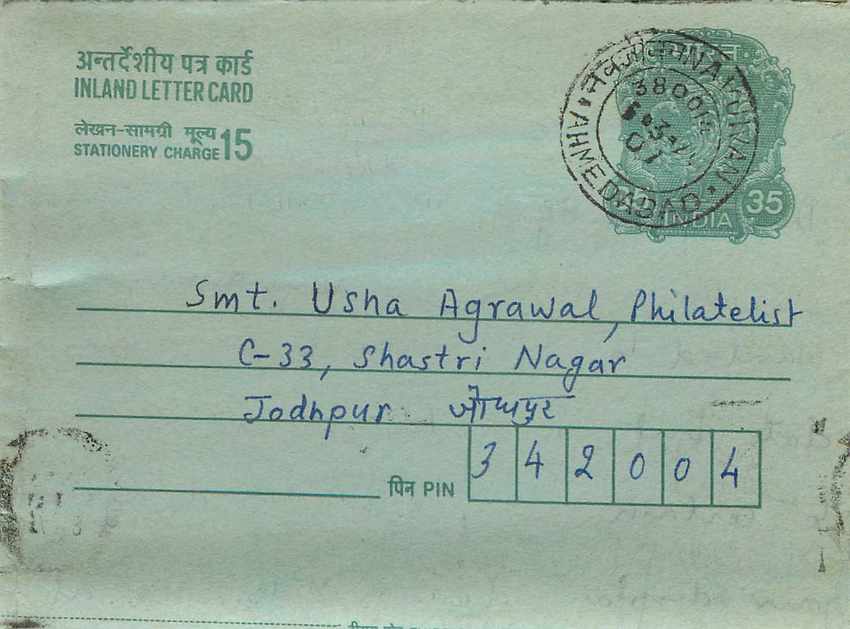 अन्तर्देशीय पत्र कार्ड
INLAND LETTER CARD
लेखन-सामग्री मूल्य 15
STATIONERY CHARGE
नवजीवन NAVJIVAN
AHMEDABAD
07
INDIA 35
Smt. Usha Agrawal, Philatelist
C-33, Shastri Nagar
Jodhpur जोधपुर
पिन PIN 342004